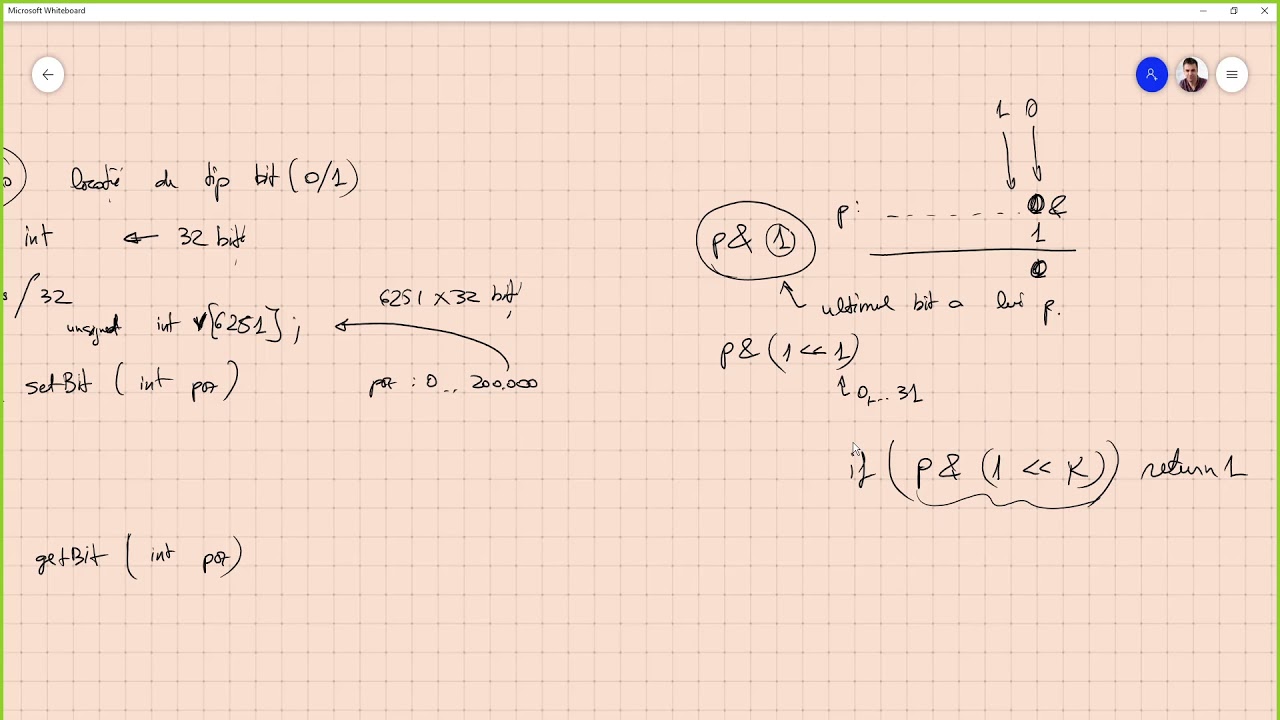 Microsoft Whiteboard
locații de tip bit (0/1)
int ← 32 biți
/32
unsigned int v[6251];
6251 x 32 biți
setBit (int poz)
poz : 0 ... 200.000
getBit (int poz)
1 0
p: - - - - - - - &
1
p & 1
ultimul bit a lui p.
p & (1 << 1)
0, ... 31
if (p & (1 << K)) return 1